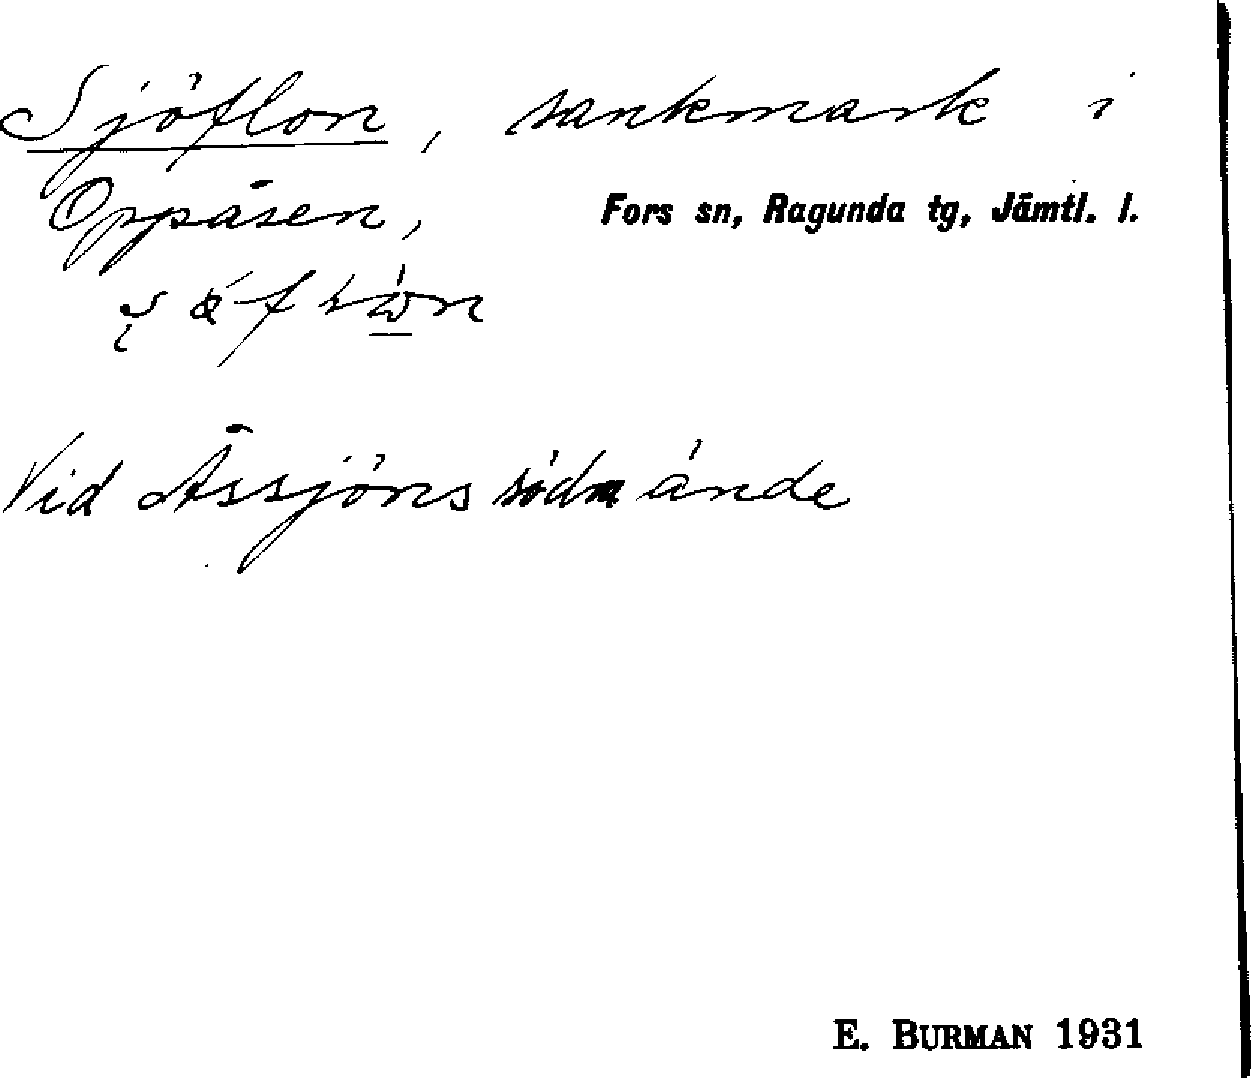 Sjöflon, sankmark i
Oppåsen, Fors sn, Ragunda tg, Jämtl. l.
Vid Åssjöns södra ände
E. BURMAN 1931